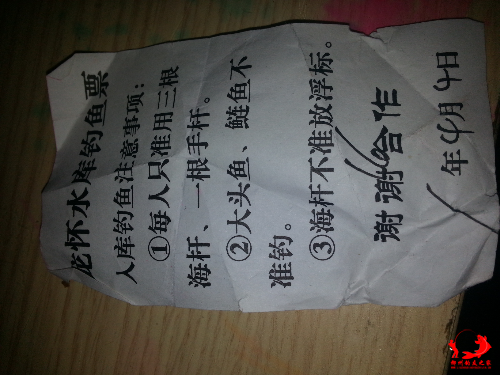 龙怀水库钓鱼票
入库钓鱼注意事项：
①每人只准用三根
海杆、一根手杆。
②大头鱼、鲢鱼不
准钓。
③海杆不准放浮标。
谢谢合作
年4月4日